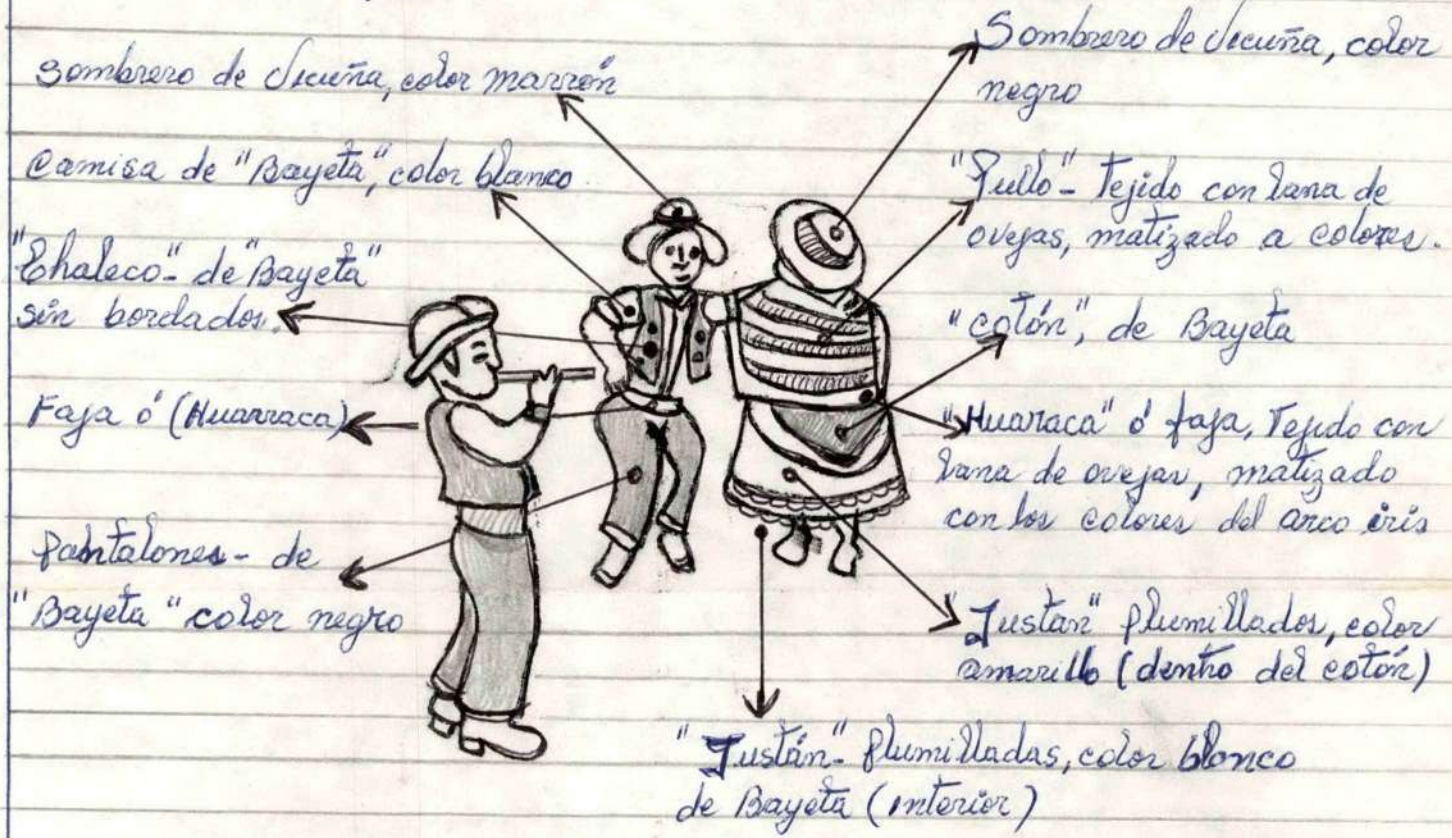 Sombrero de Vicuña, color marrón
Camisa de "Bayeta", color blanco.
"Chaleco"- de "Bayeta"
sin bordados.
Faja ó (Huarraca)
Pantalones- de
"Bayeta" color negro
Sombrero de Vicuña, color
negro
"Pullo"- Tejido con lana de
ovejas, matizado a colores.
"cotón", de Bayeta
"Huaraca" ó faja, Tejido con
lana de ovejas, matizado
con los colores del arco iris
"Fustán" plumillados, color
amarillo (dentro del cotón)
"Fustán"- plumilladas, color blanco
de Bayeta (interior)